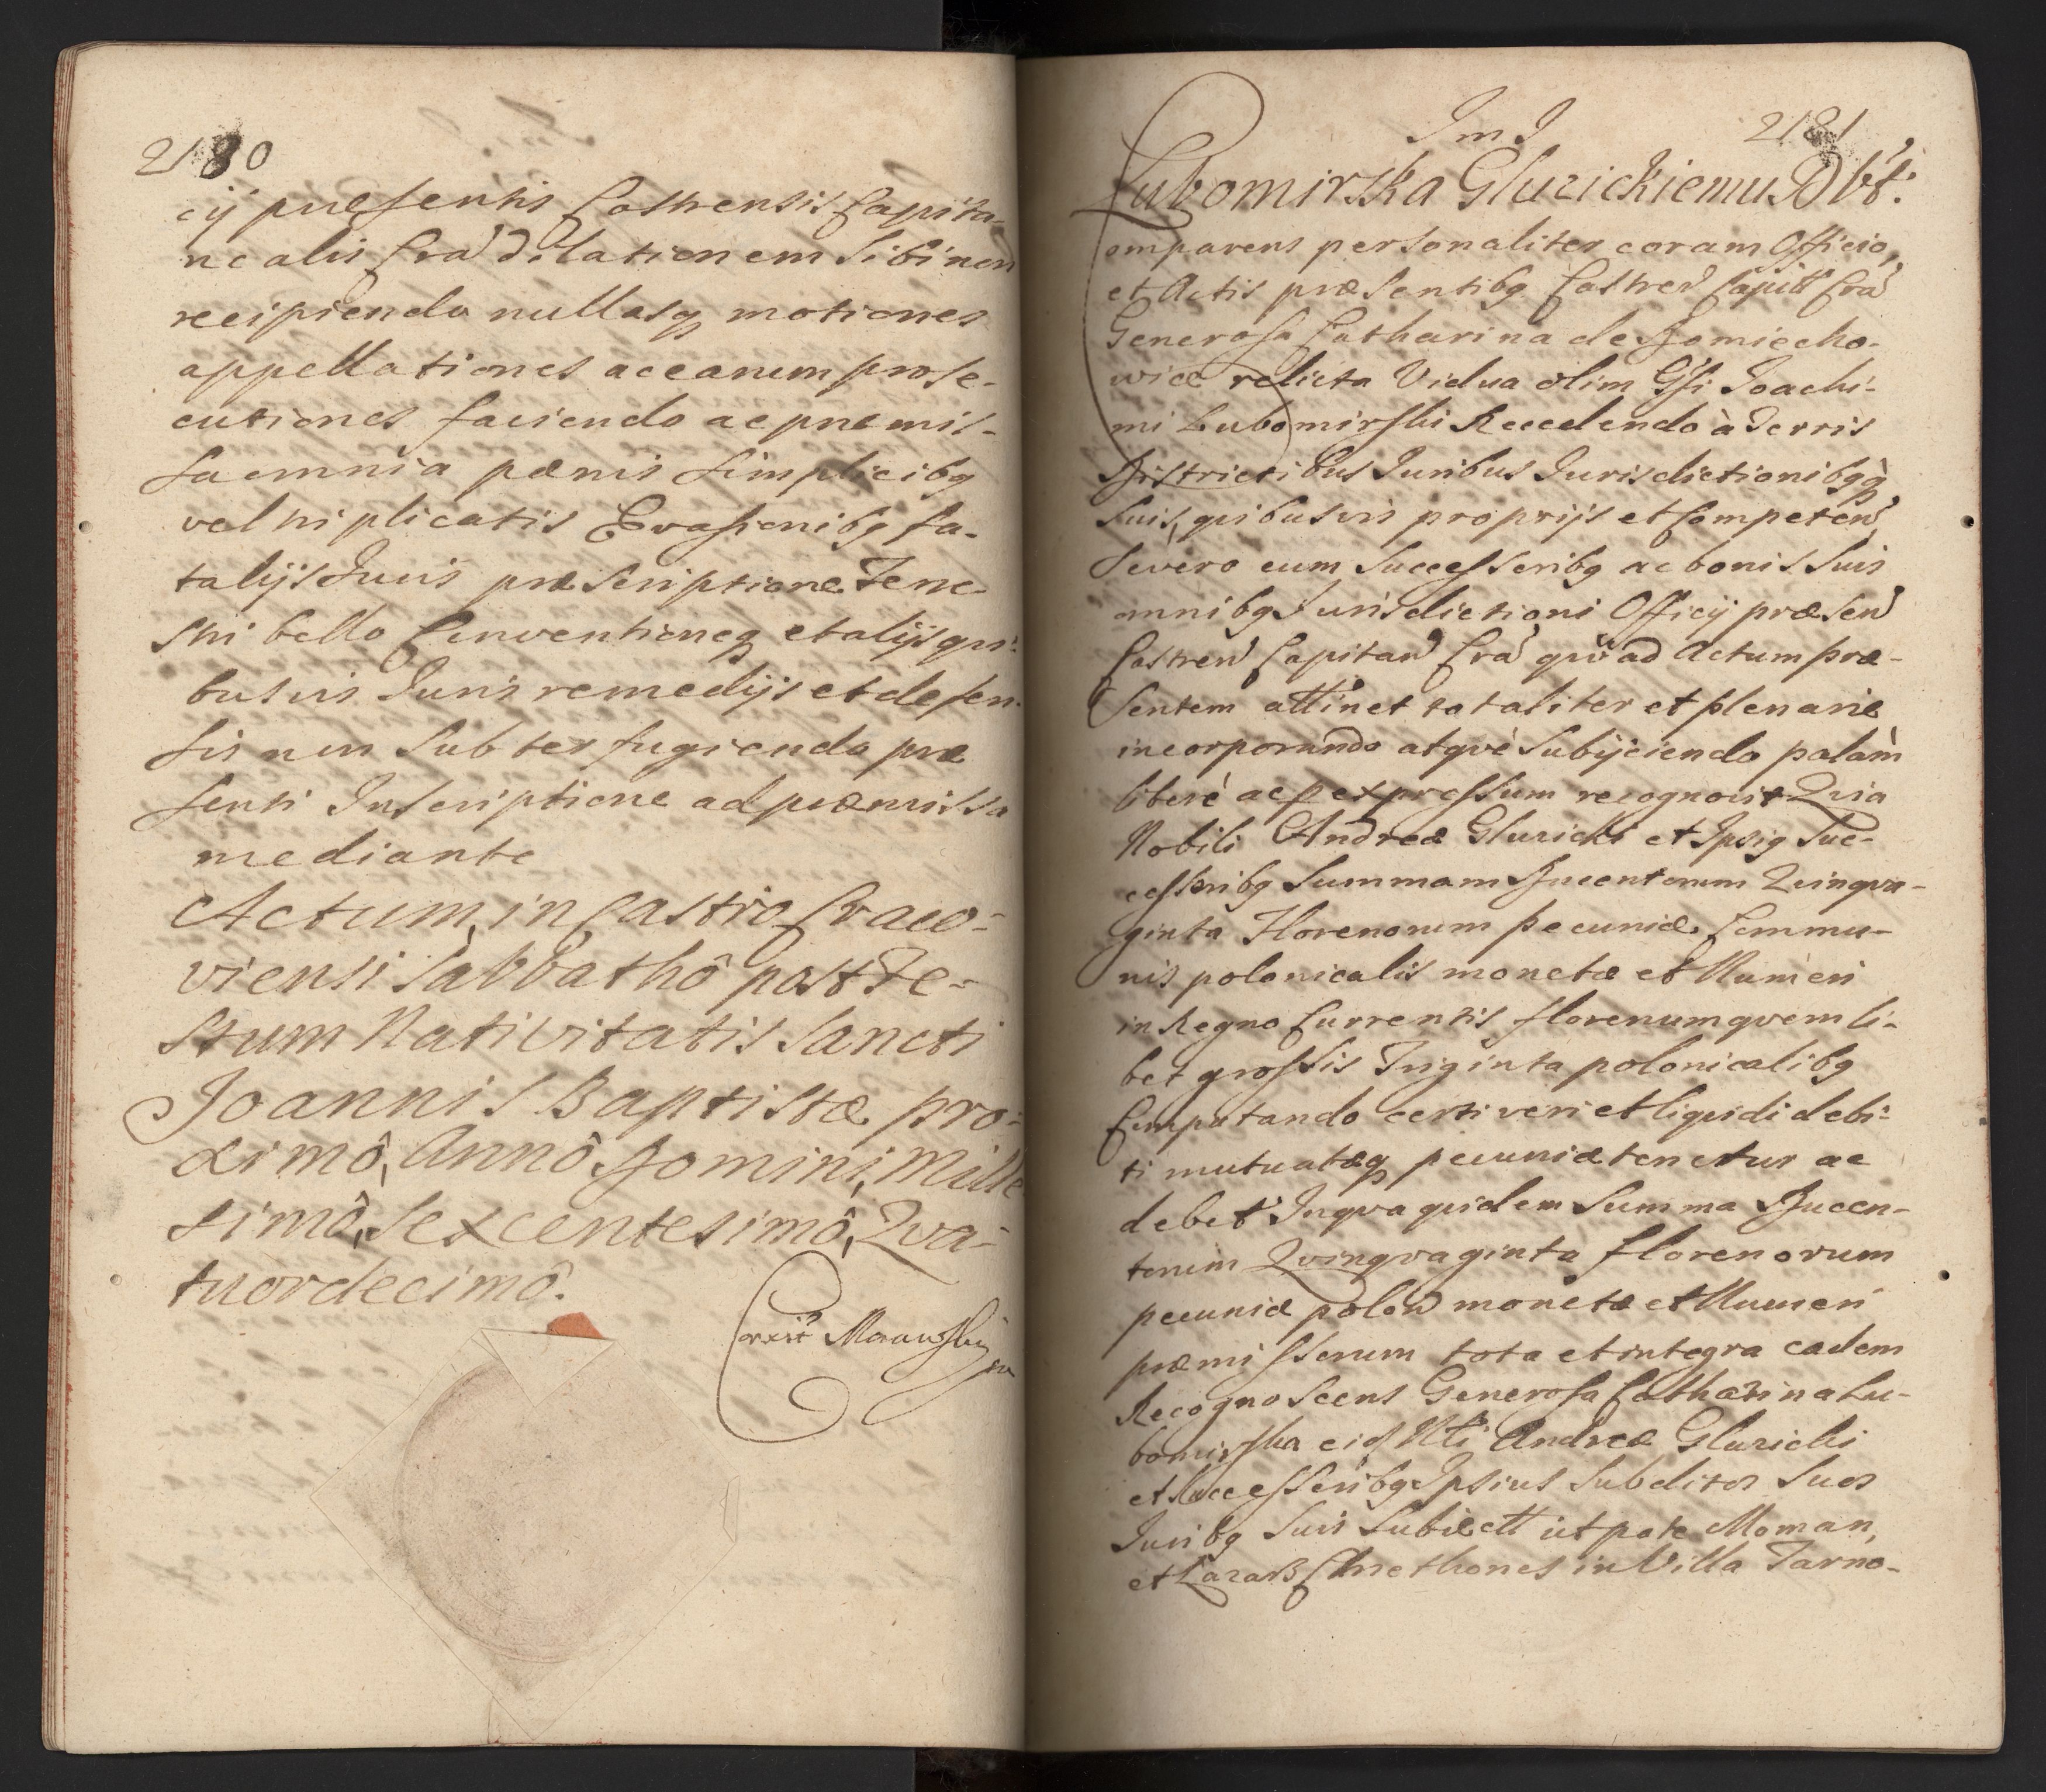 2180
cij præsentis Castrensis Capita-
nealis Cra dilationem sibi non
recipiendo nullasq motiones
appellationes accearum prose-
cutiones faciendo ac præmis-
sa omnia pænis simplicibq
vel triplicatis Evasionibq fa-
talijs Juris præscriptione Terre-
stri bello Conventioneq et alijs qui-
busvis Juris remedijs et defen-
sis non subterfugiendo præ
senti Inscriptione ad præmissa
mediante
Actum in Castro Craco-
viensi Sabbathô post Fe-
stum Nativitatis Sancti
Joannis Baptistæ pro-
ximô, Annô Domini, Mille
simô, Sexcentesimô, Qva-
tuordecimô.
Corexit
Im J 2181
Lubomirska Gluzickiemu Dbt.
omparens personaliter coram Officio,
et Actis præsentibq Castren Capitt Cra
Generosa Catharina de Domiecho-
wice relicta Vidua olim Gsi Joachi-
mi Lubomirski Recedendo à Terris
Districtibus Juribus Jurisdictionibqq
suis, quibusvis proprijs et Competen
severo cum Successoribq ac bonis suis
omnibq Jurisdictioni Officij præsen
Castren Capitan Cra qvo ad Actum præ-
sentem attinet totaliter et plenarie
incorporando atqvè Subijciendo palàm
liberè ac p expressum recognovit Qvia
Nobili Andreæ Gluzicki et Ipsiq Suc-
cessoribq Summam Ducentorum Qvinqva-
ginta Florenorum pecuniæ Commu-
nis polonicalis monetæ et Numeri
in Regno Currentis florenum qvemli-
bet grossis Triginta polonicalibq
Computando certi veri et liqvidi debi-
ti mutuatæq pecuniæ tenetur ac
debet Inqva qvidem Summa Ducen-
torum Qvinqvaginta florenorum
pecuniæ polon monetæ et Numeri
præmissorum tota et integra eadem
Recognoscens Generosa Catharina Lu-
bomirska eid Nli Andreæ Gluzicki
et Successoribq Ipsius Subditos Suos
Juribq Suis Subiectt utpote Moman
et Lazarz Cmethones in Villa Tarno-